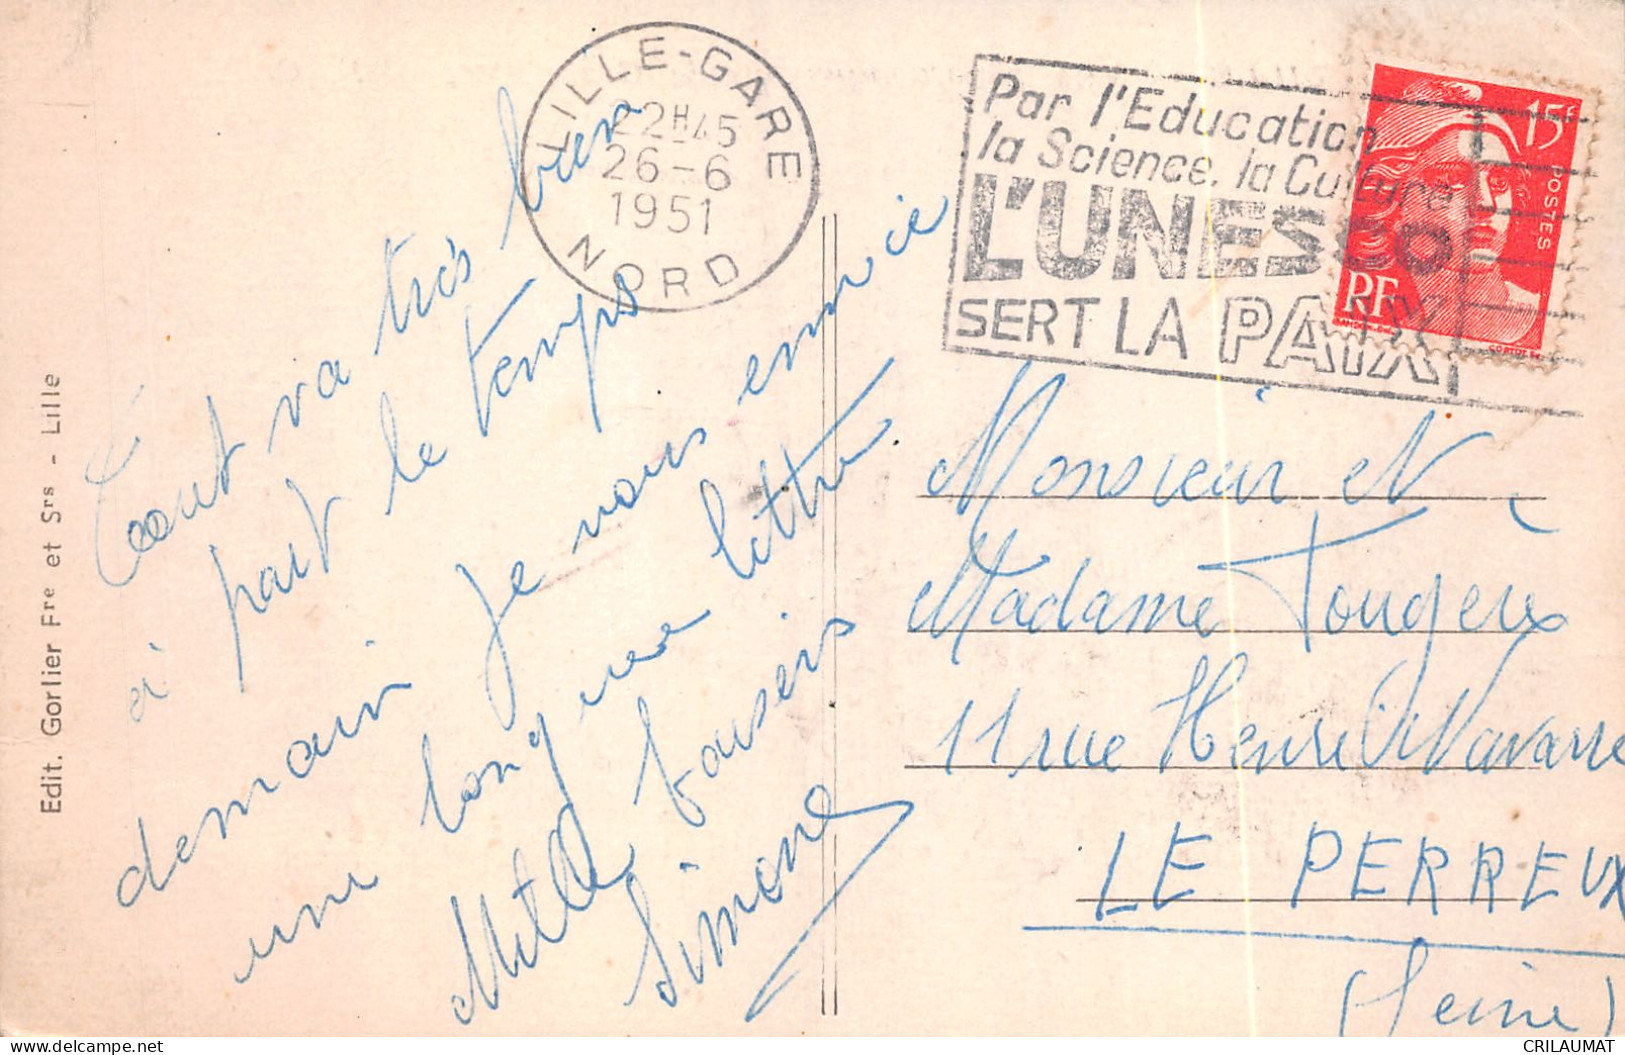 LILLE-GARE
22H45
26-6
1951
NORD
Par l'Education
la Science, la Culture
L'UNESCO
SERT LA PAIX
15F
POSTES
RF
GANDON
CORTOT
Edit. Gorlier Fre et Srs - Lille
Tout va très bien
à part le temps
demain je vous envoie
une longue lettre
Mille baisers
Simone
Monsieur et
Madame Fougeux
11 rue Henri Navarre
LE PERREUX
(Seine)
CRILAUMAT